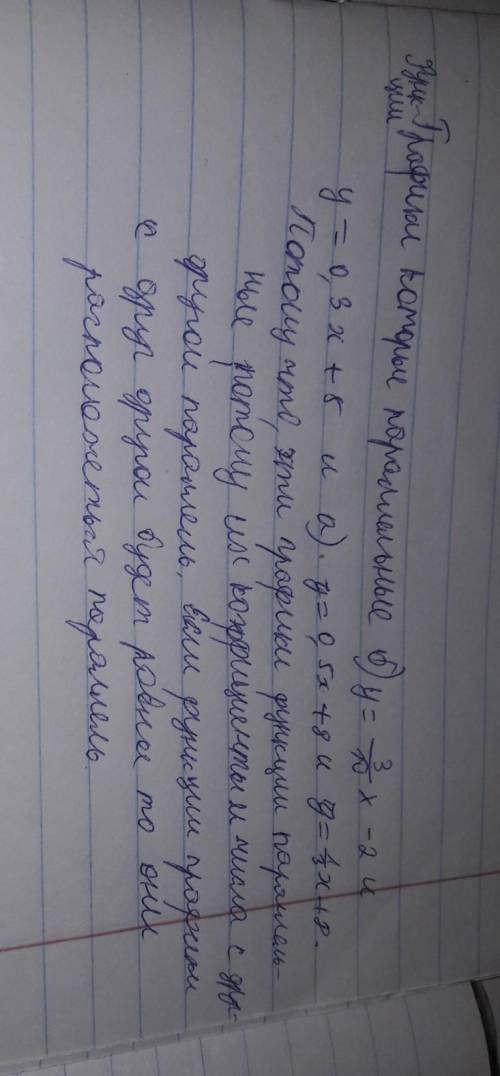 Функ- Графики которые параллельные б) y = 3/10 x - 2 и
ции
y = 0,3x + 5 и а). y = 0,5x + 8 и y = 1/2 x + 8.
Потому что, эти графики функции параллель-
ные потому их коэффициенты и числа с друг-
другой параллель, Если функции графики
с друг другой будет равны то они
расположенный параллель